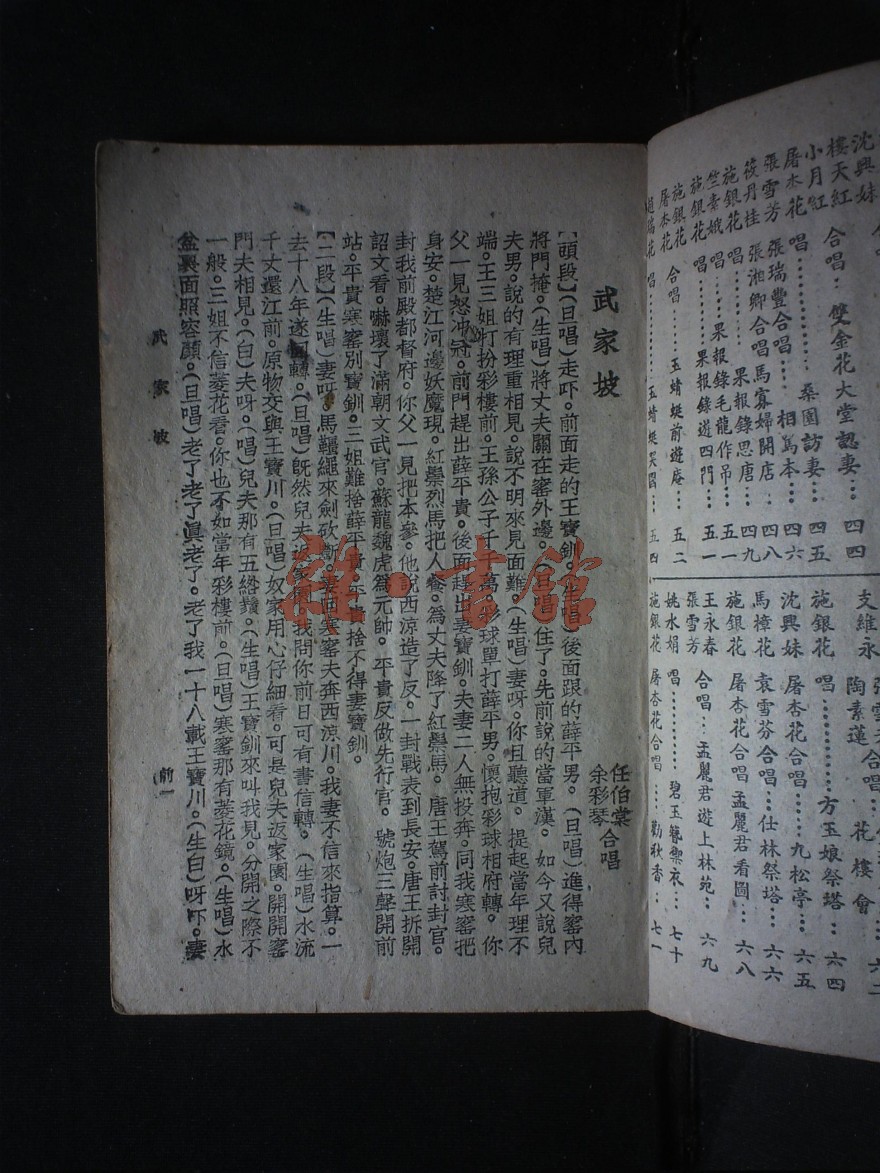 沈興妹
樓天紅 合唱…雙金花大堂認妻…四四
小月紅
屠杏花 唱…………桑園訪妻…四五
張雪芳 張瑞豐合唱……相罵本…四六
筱丹桂 張湘卿合唱馬寡婦開店…四八
施銀花 唱……果報錄思唐…四九
竺素娥 唱…果報錄毛龍作吊…五一
施銀花 唱……果報錄遊四門…五一
施銀花
屠杏花 合唱…玉蜻蜓前遊庵…五二
趙瑞花 唱…………玉蜻蜓哭圖…五四
支維永 張雪芳合唱…
陶素蓮 合唱…花樓會…六二
施銀花 唱…………方玉娘祭塔…六四
沈興妹 屠杏花合唱…九松亭…六五
馬樟花 袁雪芬合唱…仕林祭塔…六六
施銀花 屠杏花合唱孟麗君看圖…六八
王永春
張雪芳 合唱…孟麗君遊上林苑…六九
姚水娟 唱…………碧玉簪禦衣…七十
施銀花 屠杏花合唱…勸耿香…七一
武家坡
任伯棠
余彩琴 合唱
【頭段】(旦唱)走吓。前面走的王寶釧。(生唱)後面跟的薛平男。(旦唱)進得窰內
將門掩。(生唱)將丈夫關在窰外邊。(旦唱)住了。先前說的當軍漢。如今又說兒
夫男。說的有理重相見。說不明來見面難。(生唱)妻呀。你且聽道。提起當年理不
端。王三姐打扮彩樓前。王孫公子千千萬。彩球單打薛平男。懷抱彩球相府轉。你
父一見怒冲冠。前門趕出薛平貴。後面趕出妻寶釧。夫妻二人無投奔。同我寒窰把
身安。楚江河邊妖魔現。紅鬃烈馬把人餐。爲丈夫降了紅鬃馬。唐王駕前討封官。
封我前殿都督府。你父一見把本參。他說西涼造了反。一封戰表到長安。唐王拆開
詔文看。嚇壞了滿朝文武官。蘇龍魏虎爲元帥。平貴反做先行官。號炮三聲開前
站。平貴寒窰別寶釧。三姐難捨薛平貴。平貴捨不得妻寶釧。
【二段】(生唱)妻呀。馬韁繩來劍砍斷。妻回寒窰夫奔西涼川。我妻不信來指算。一
去十八年遂回轉。(旦唱)既然兒夫返家園。我問你前日可有書信轉。(生唱)水流
千丈還江前。原物交與王寶川。(旦唱)奴家用心仔細看。可是兒夫返家園。開開窰
門夫相見。(白)夫呀。(唱)兒夫那有五綹鬚。(生唱)王寶釧來叫我見。分開之際不
一般。三姐不信菱花看。你也不如當年彩樓前。(旦唱)寒窰那有菱花鏡。(生唱)水
盆裏面照容顏。(旦唱)老了老了眞老了。老了我一十八載王寶川。(生白)呀吓。妻
武家坡
前一
雜·書館